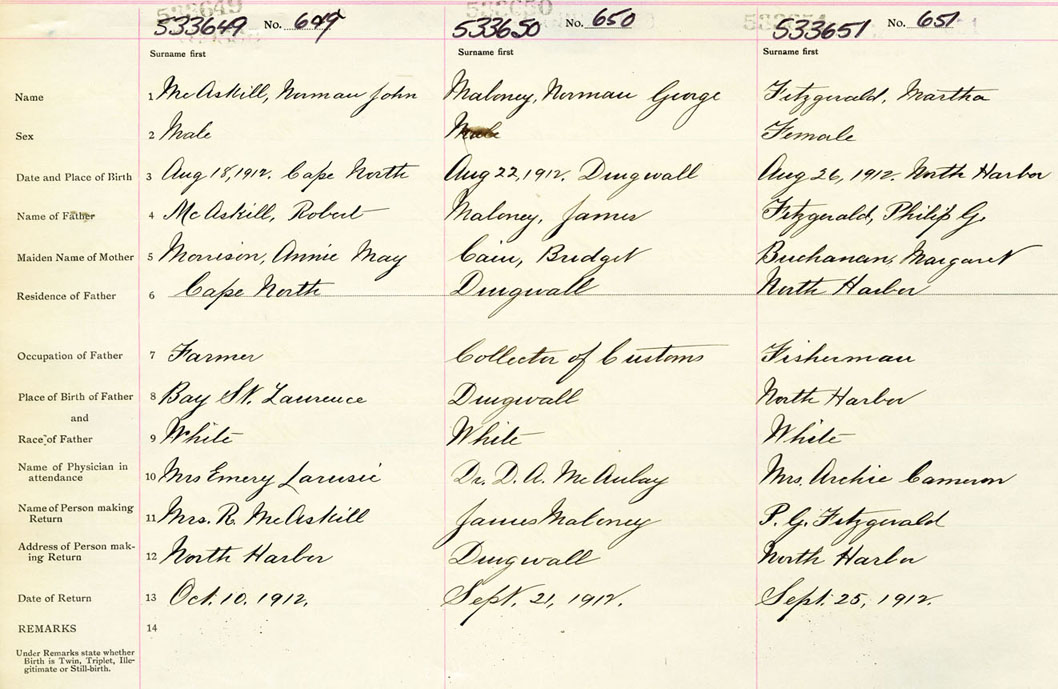 533649 533650
533649 No. 649 533650 No. 650 533651 No. 651
Surname first Surname first Surname first
Name 1 McAskill, Norman John Maloney, Norman George Fitzgerald, Martha
Sex 2 Male Male Female
Date and Place of Birth 3 Aug 18, 1912. Cape North Aug 22, 1912. Dingwall Aug 26, 1912. North Harbor
Name of Father 4 McAskill, Robert Maloney, James Fitzgerald, Philip G.
Maiden Name of Mother 5 Morrison, Annie May Cain, Bridget Buchanan, Margaret
Residence of Father 6 Cape North Dingwall North Harbor
Occupation of Father 7 Farmer Collector of Customs Fisherman
Place of Birth of Father 8 Bay St. Laurence Dingwall North Harbor
and
Race of Father 9 White White White
Name of Physician in
attendance 10 Mrs Emery Dr. D. A. McAulay Mrs. Archie Cameron
Name of Person making
Return 11 Mrs. R. McAskill James Maloney P. G. Fitzgerald
Address of Person mak-
ing Return 12 North Harbor Dingwall North Harbor
Date of Return 13 Oct. 10. 1912. Sept. 21, 1912. Sept. 25, 1912.
REMARKS 14
Under Remarks state whether
Birth is Twin, Triplet, Ille-
gitimate or Still-birth.